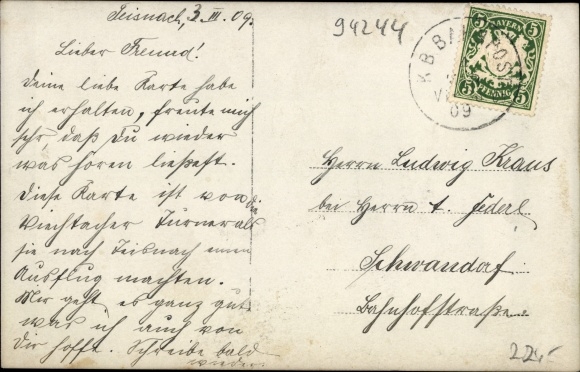 Teisnach, 3. III. 09.
Lieber Freund!
Deine liebe Karte habe
ich erhalten, freute mich
sehr daß Du wieder
was hören ließest.
Diese Karte ist von die
Viechtacher Turner als
sie nach Teisnach einen
Ausflug machten.
Mir geht es ganz gut
was ich auch von
Dir hoffe. Schreibe bald
wieder.
94244
K B BAHNPOST
09
5 BAYERN 5
5 PFENNIG 5
Herrn Ludwig Kraus
bei Herrn t. Federl
Schwandorf
Bahnhofstraße